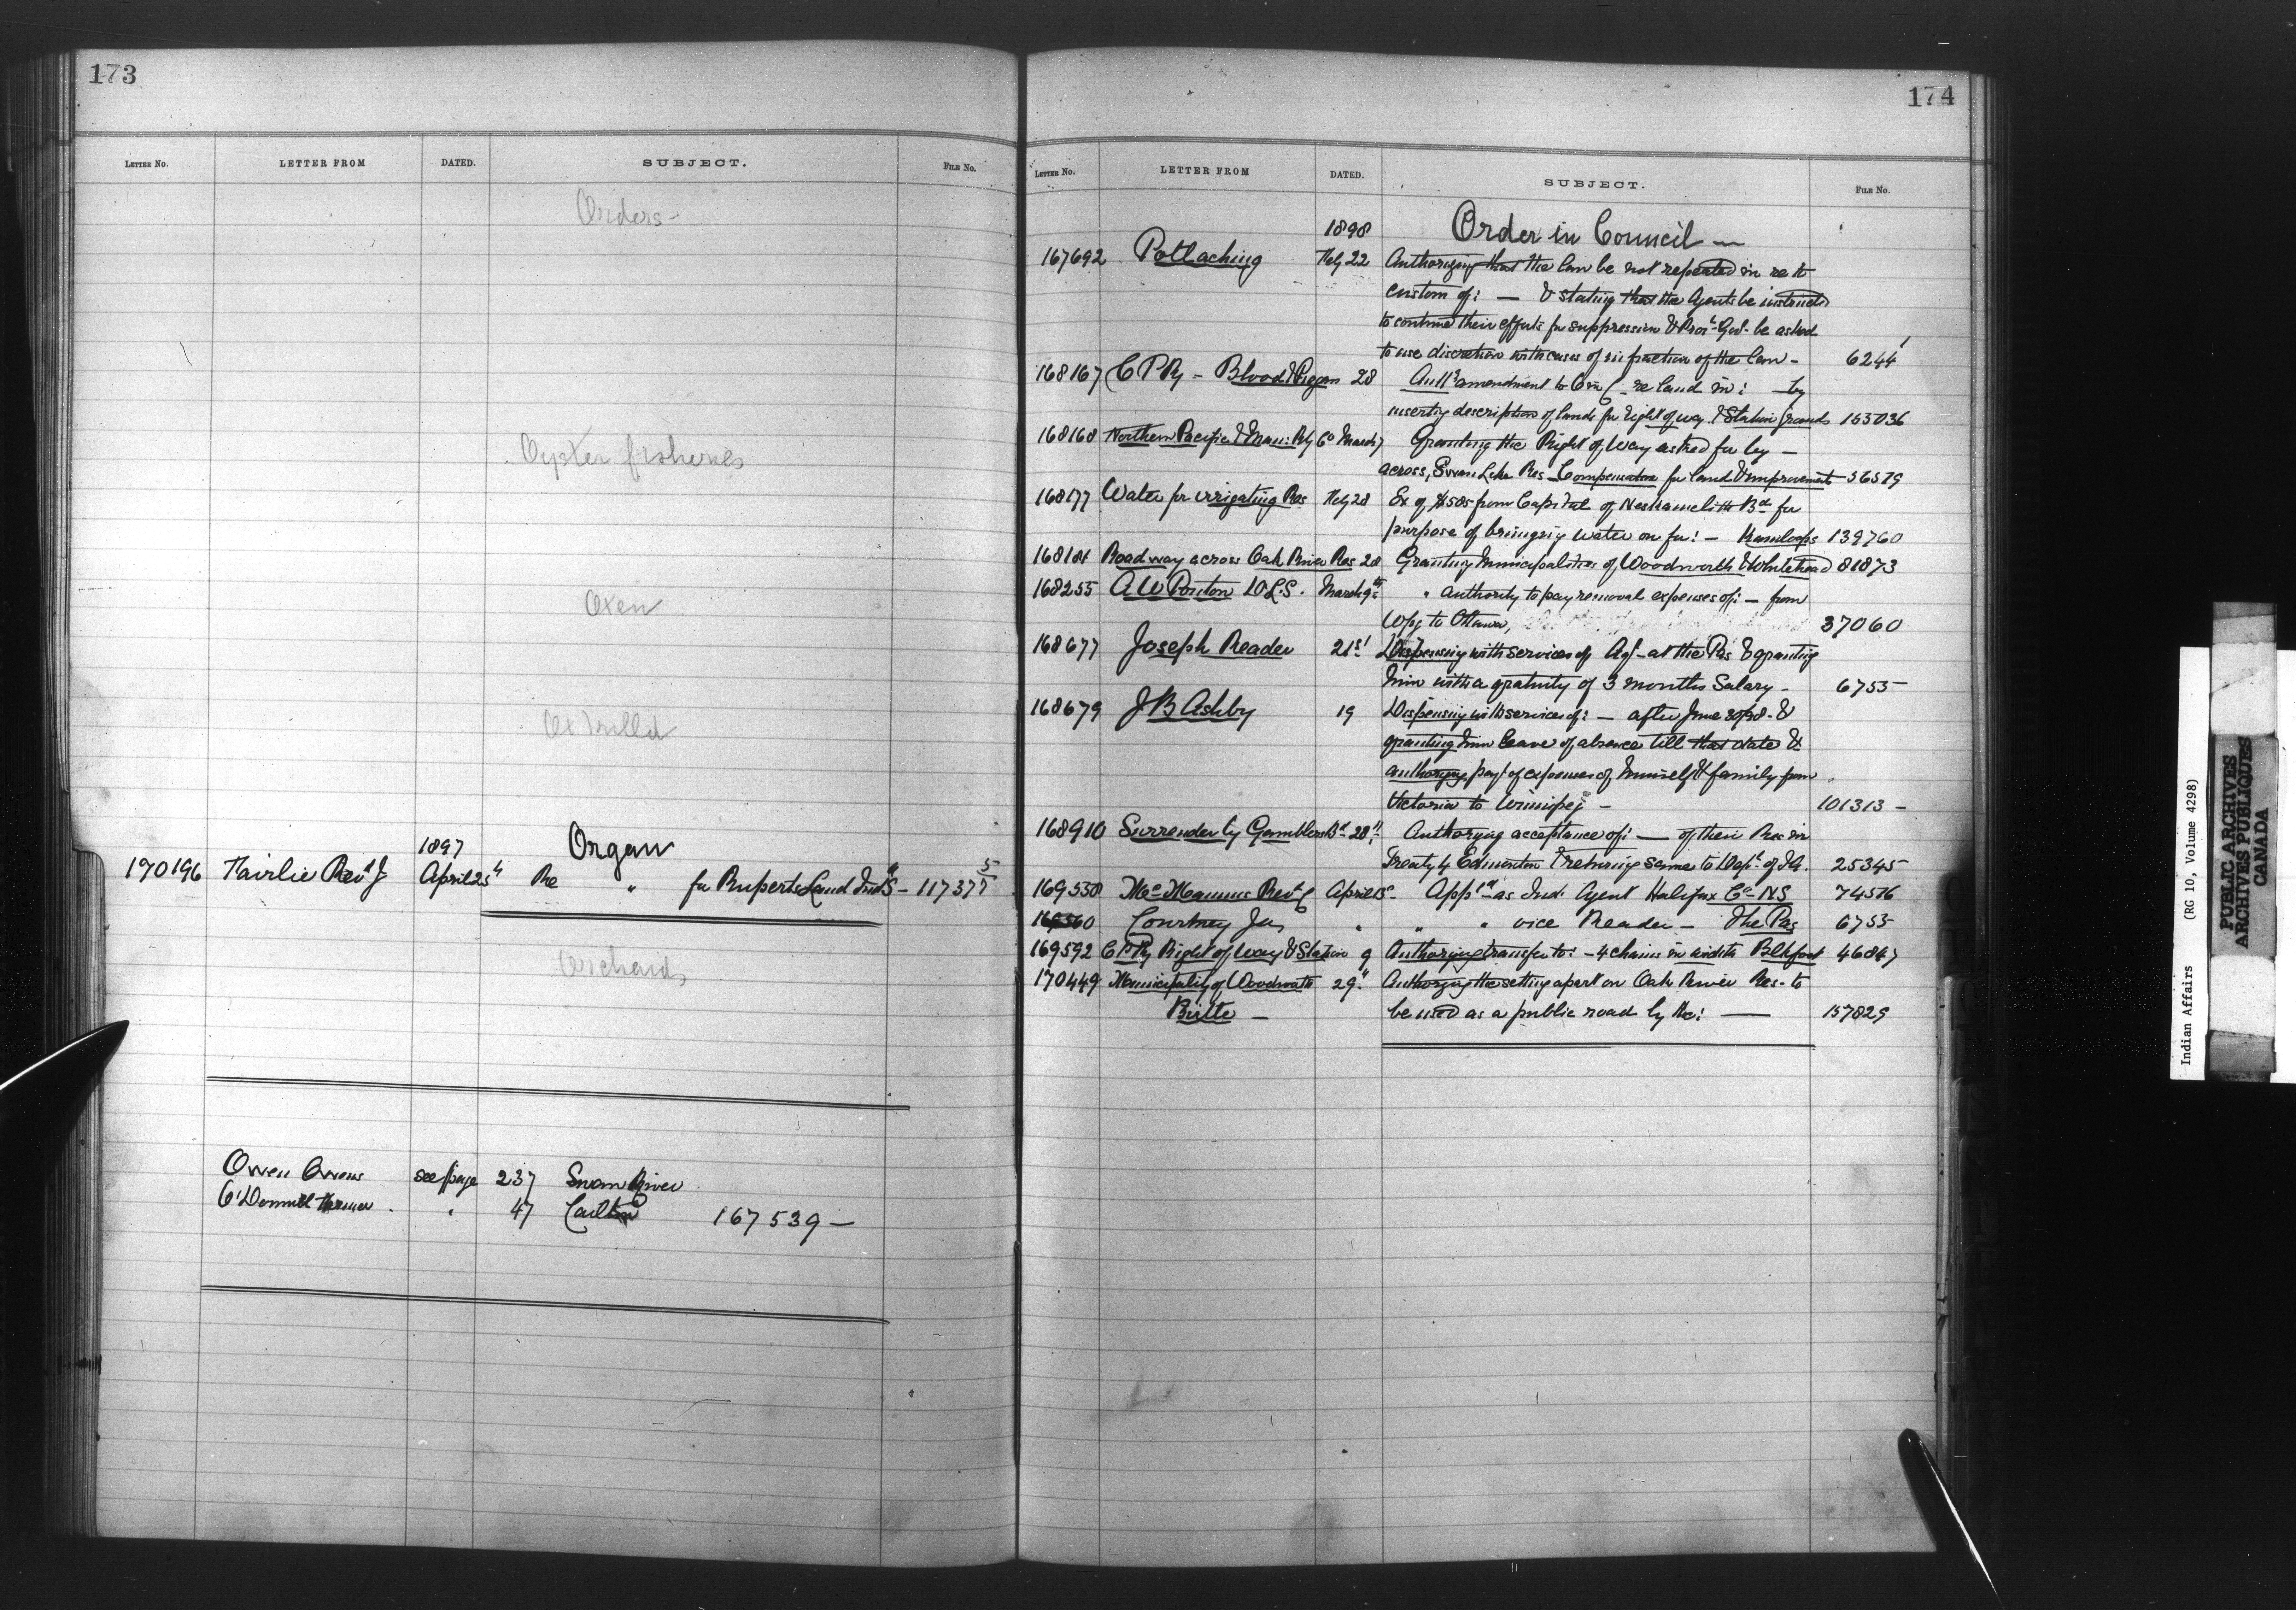 173
LETTER No. LETTER FROM DATED. SUBJECT. FILE No.
Orders-
Oyster fisheries
Oxen
Ox
1897 Organ
170196 Fairlie Revd J April 25th Re " for Ruperts Land Indl S - 117377 5
Orchards
Owen Owens see page 237 Swan River
O'Donnell " 47 Carlton 167539 -
174
LETTER No. LETTER FROM DATED. SUBJECT. FILE No.
1898 Order in Council -
167692 Potlaching Feby 22 Authorizing that the law be not repealed in re to
custom of: - & stating that the Agents be instructed
to continue their efforts for suppression & Provl Govt be asked
to use discretion with cases of infraction of the law - 6244 1
168167 C P Ry - Blood & Piegan 28 Authg amendment to O in C re land in: - by
inserting description of lands for right of way & Station Grounds 153036
168168 Northern Pacific & Man: Ry Co March 7 Granting the Right of Way asked for by -
across Swan Lake Res - Compensation for land & improvements 36579
168177 Water for irrigating Res Feby 28 Ex of $505 from Capital of Neskainlith Bd for
purpose of bringing water on for: - Kamloops 139760
168181 Roadway across Oak River Res 28 Granting Municipalities of Woodworth & Whitehead 81873
168255 A W Ponton D.L.S. March 9th " authority to pay removal expenses of: - from
Wpg to Ottawa, 37060
168677 Joseph Reader 21st Dispensing with services of Agt - at the Pas & granting
him with a gratuity of 3 months Salary - 6755
168679 J B Ashby 19 Dispensing with services of: - after June 30/98 - &
granting him leave of absence till that date &
authorizing payt of expenses of himself & family from
Victoria to Winnipeg - 101313 -
168910 Surrender by Gamblers Bd 28th Authorizing acceptance of: - of their Res in
Treaty 4 Edmonton & returning same to Dept of I.A. 25345
169558 McManus Revd C April 15 Apptd as Ind. Agent Halifax Co NS 74516
169560 Courtney Jos " " " vice Reader - The Pas 6755
169592 C P Ry Right of Way & Station 9 Authorizing transfer to: - 4 chains in width Blkfoot 46847
170449 Municipality of Woodworth 29th Authorizing the setting apart on Oak River Res - to
Birtle - be used as a public road by the: - 157829
Indian Affairs (RG 10, Volume 4298)
PUBLIC ARCHIVES
ARCHIVES PUBLIQUES
CANADA